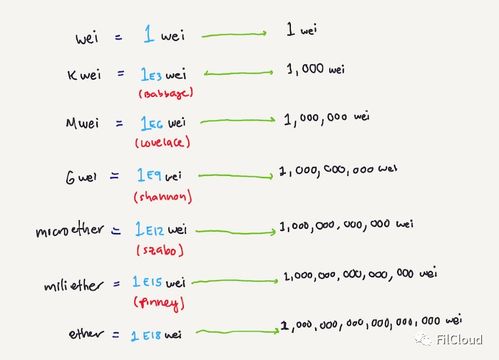 wei = 1 wei 1 wei
Kwei = 1E3 wei 1,000 wei
(Babbage)
Mwei = 1E6 wei 1,000,000 wei
(lovelace)
Gwei = 1E9 wei 1,000,000,000 wei
(shannon)
microether = 1E12 wei 1,000,000,000,000 wei
(szabo)
miliether = 1E15 wei 1,000,000,000,000,000 wei
(finney)
ether = 1E18 wei 1,000,000,000,000,000,000 wei
FilCloud